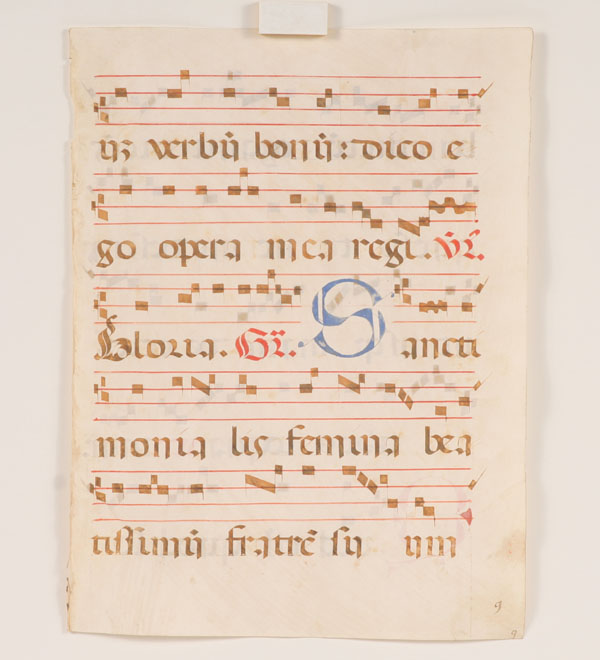 uȝ verbū bonū: dico e
go opera mea regi. Vr̄.
Gloria. Gr̄. Sancti
monia lis femina bea
tissimū fratrē su um
9
9